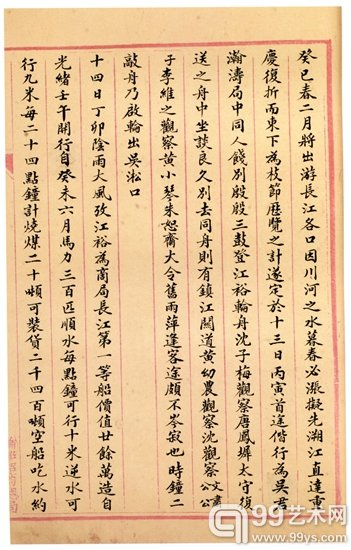 癸巳春二月將出游長江各口因川河之水暮春必漲擬先溯江直達重
慶復折而東下為枝節歷覽之計遂定於十三日丙寅首途偕行為吳君
瀚濤局中同人餞別殷殷三鼓登江裕輪舟沈子梅觀察唐鳳墀太守復
送之舟中坐談良久別去同舟則有鎮江關道黃幼農觀察沈觀察
子李維之觀察黃小琴朱恕齋大令舊雨萍逢客途頗不岑寂也時鐘二
敲舟乃啟輪出吳淞口
十四日丁卯陰雨大風攷江裕為商局長江第一等船價值廿餘萬造自
光緒壬午開行自癸未六月馬力三百匹順水每點鐘可行十米逆水可
行九米每二十四點鐘計燒煤二十頓可裝貨二千四百頓空船吃水約
99艺术网
www.99ys.com